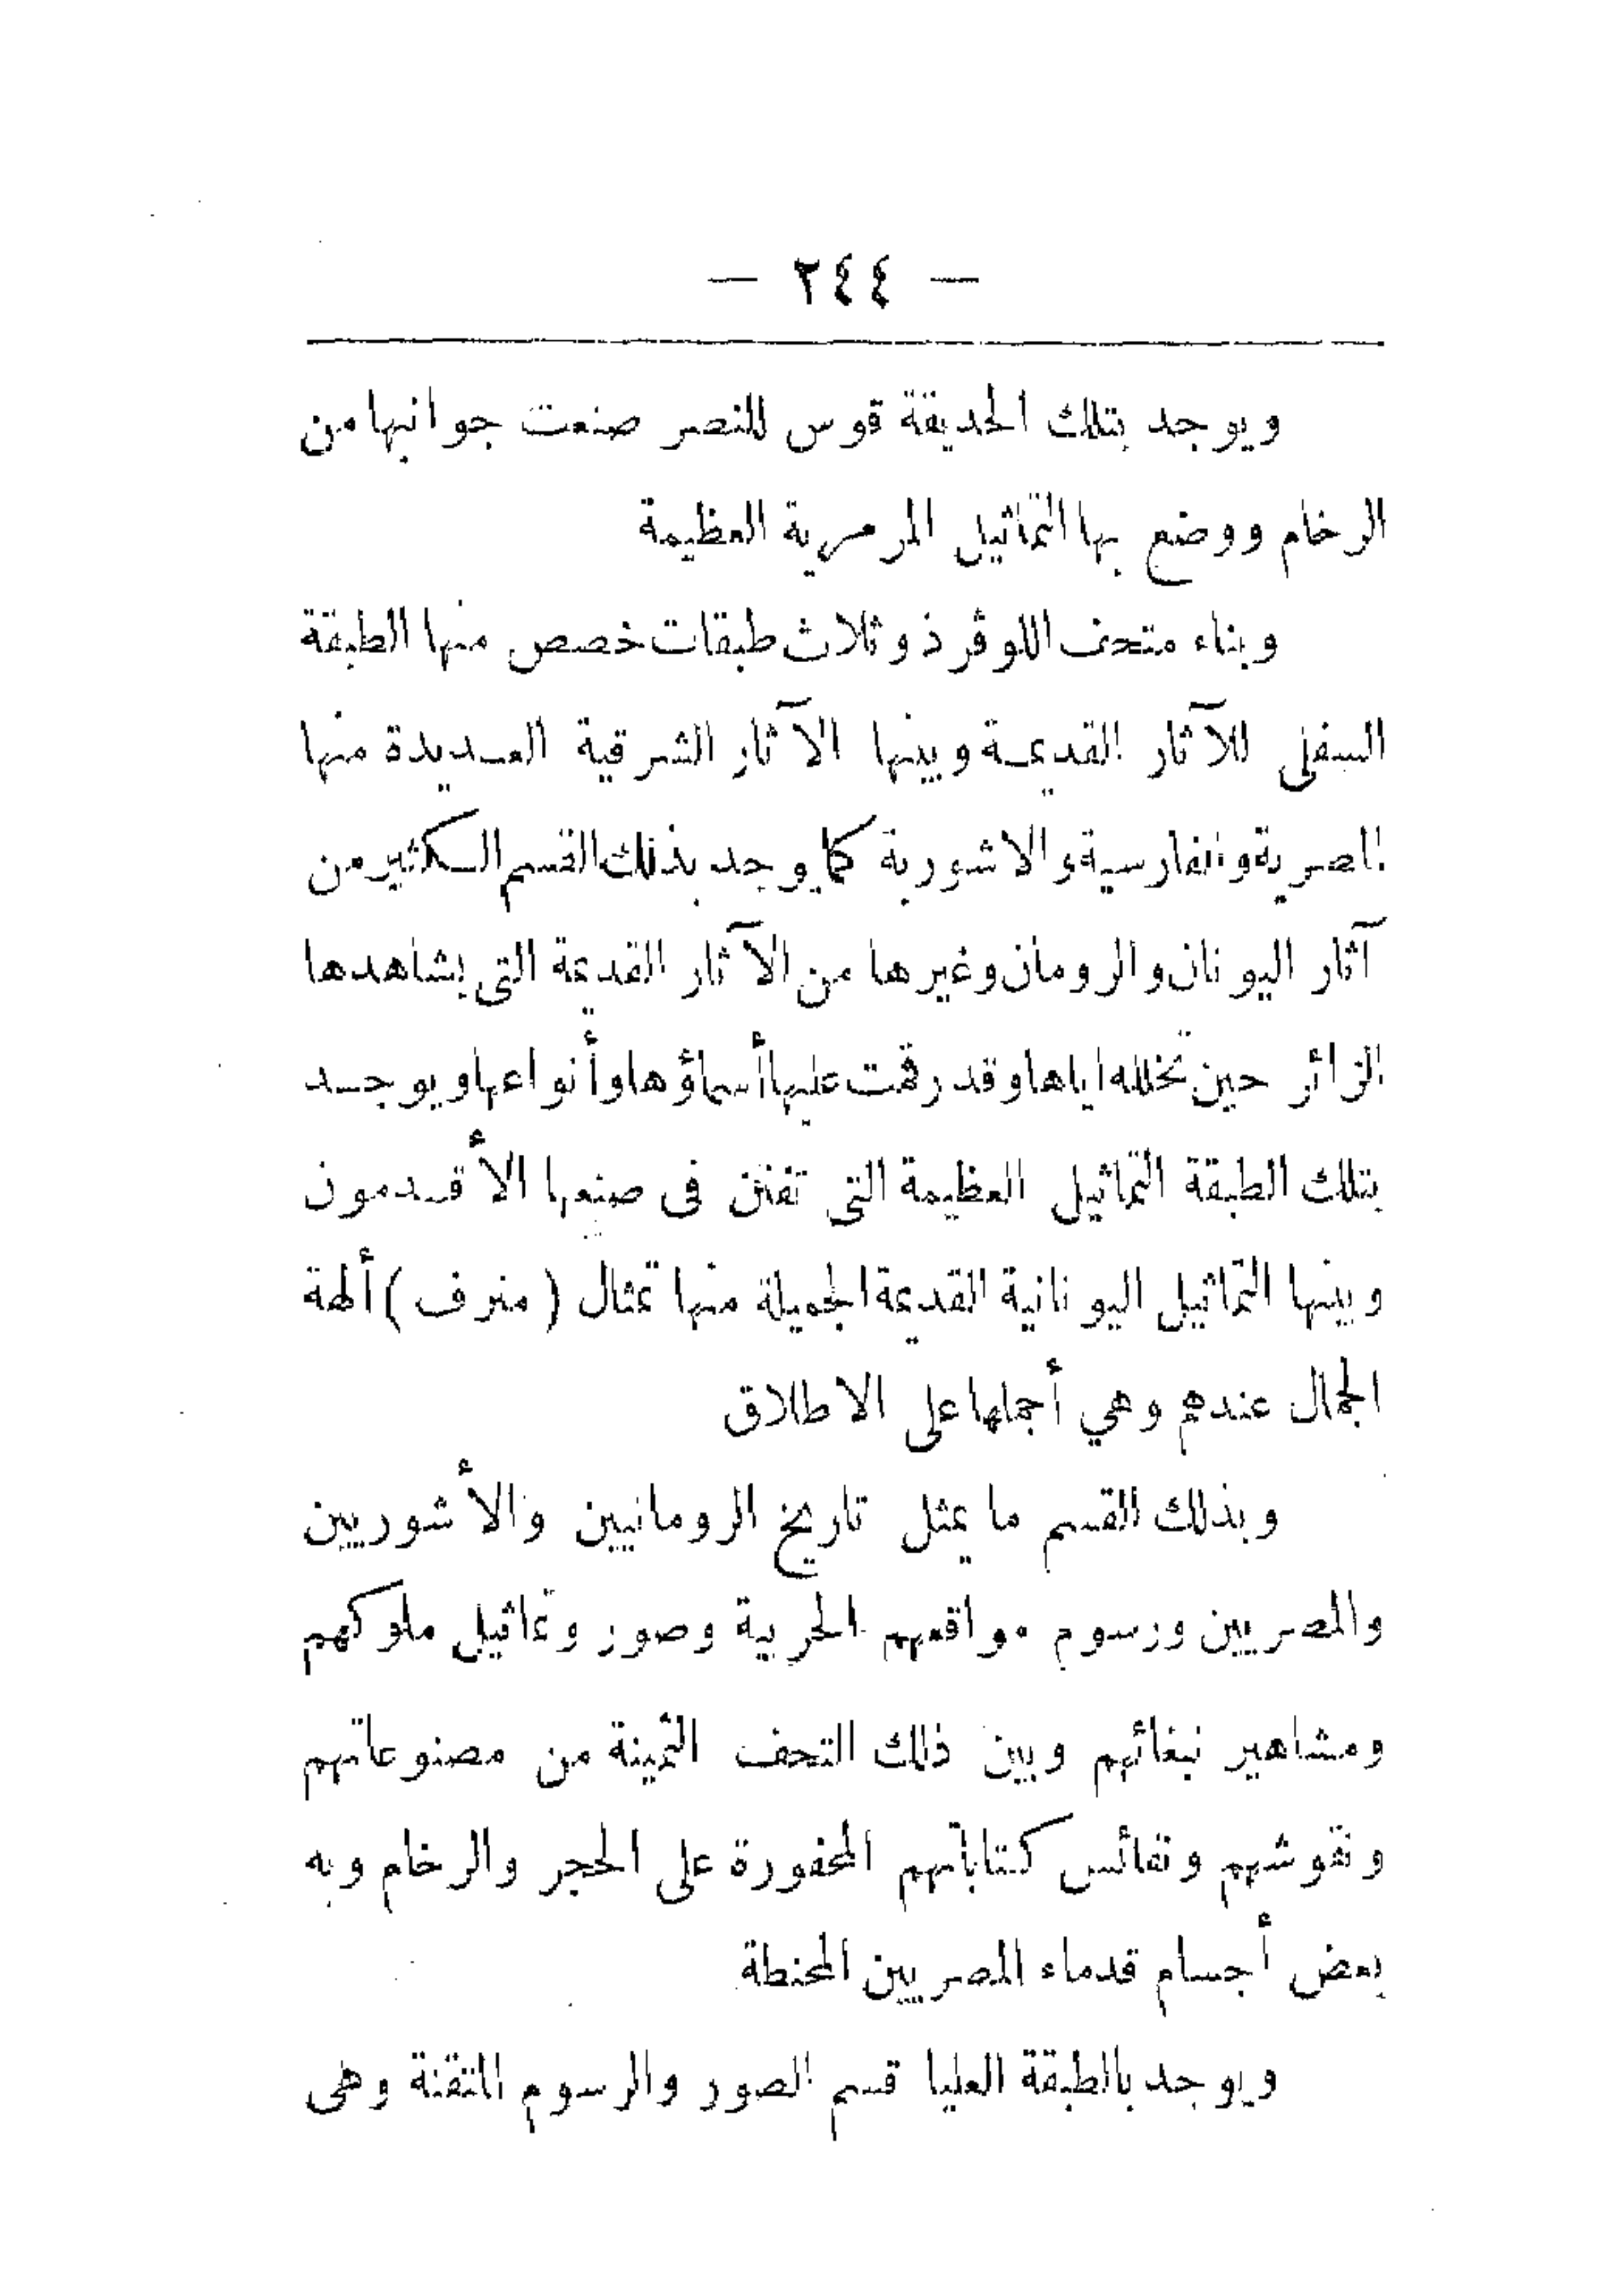 — ٢٤٤ —
ويوجد بتلك الحديقة قوس للنصر صنعت جوانبها من
الرخام ووضع بها التماثيل المرمرية العظيمة
وبناء متحف اللوڤر ذو ثلاث طبقات خصص منها الطبقة
السفلى للآثار القديمة وبينها الآثار الشرقية العديدة منها
المصرية والفارسية والاشورية كما يوجد بذلك القسم الكثير من
آثار اليونان والرومان وغيرها من الآثار القديمة التى يشاهدها
الزائر حين تخلله اياها وقد رقمت عليها أسماؤها وأنواعها ويوجد
بتلك الطبقة التماثيل العظيمة التى تفنن فى صنعها الأقدمون
وبينها التماثيل اليونانية القديمة الجميلة منها تمثال (منرف) ألهة
الجمال عندهم وهي أجملها على الاطلاق
وبذلك القسم ما يمثل تاريخ الرومانيين والأشوريين
والمصريين ورسوم مواقعهم الحربية وصور وتماثيل ملوكهم
ومشاهير نبغائهم وبين ذلك التحف الثمينة من مصنوعاتهم
ونقوشهم ونفائس كتاباتهم المحفورة على الحجر والرخام وبه
بعض أجسام قدماء المصريين المحنطة
ويوجد بالطبقة العليا قسم الصور والرسوم المتقنة وهى